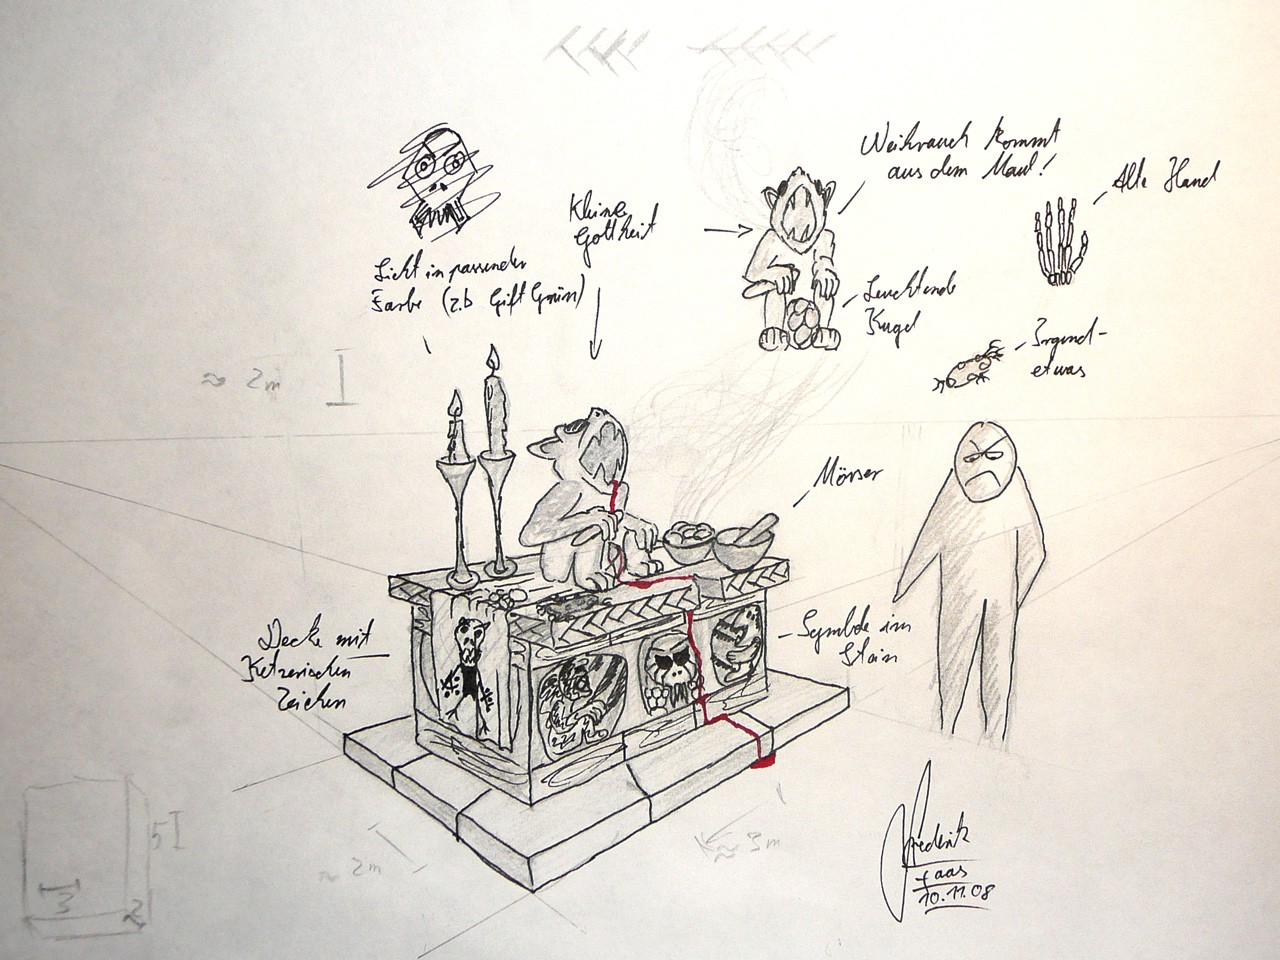 Weihrauch kommt
aus dem Maul!
Alte Hand
Kleine
Gottheit
Licht in passender
Farbe (z.b Giftgrün)
Leuchtende
Kugel
Irgend-
etwas
≈ 2m
Mörser
Decke mit
Ketzerischen
Zeichen
Symbole im
Stein
≈ 2m
≈ 3m
5
3
2
Frederik
10.11.08